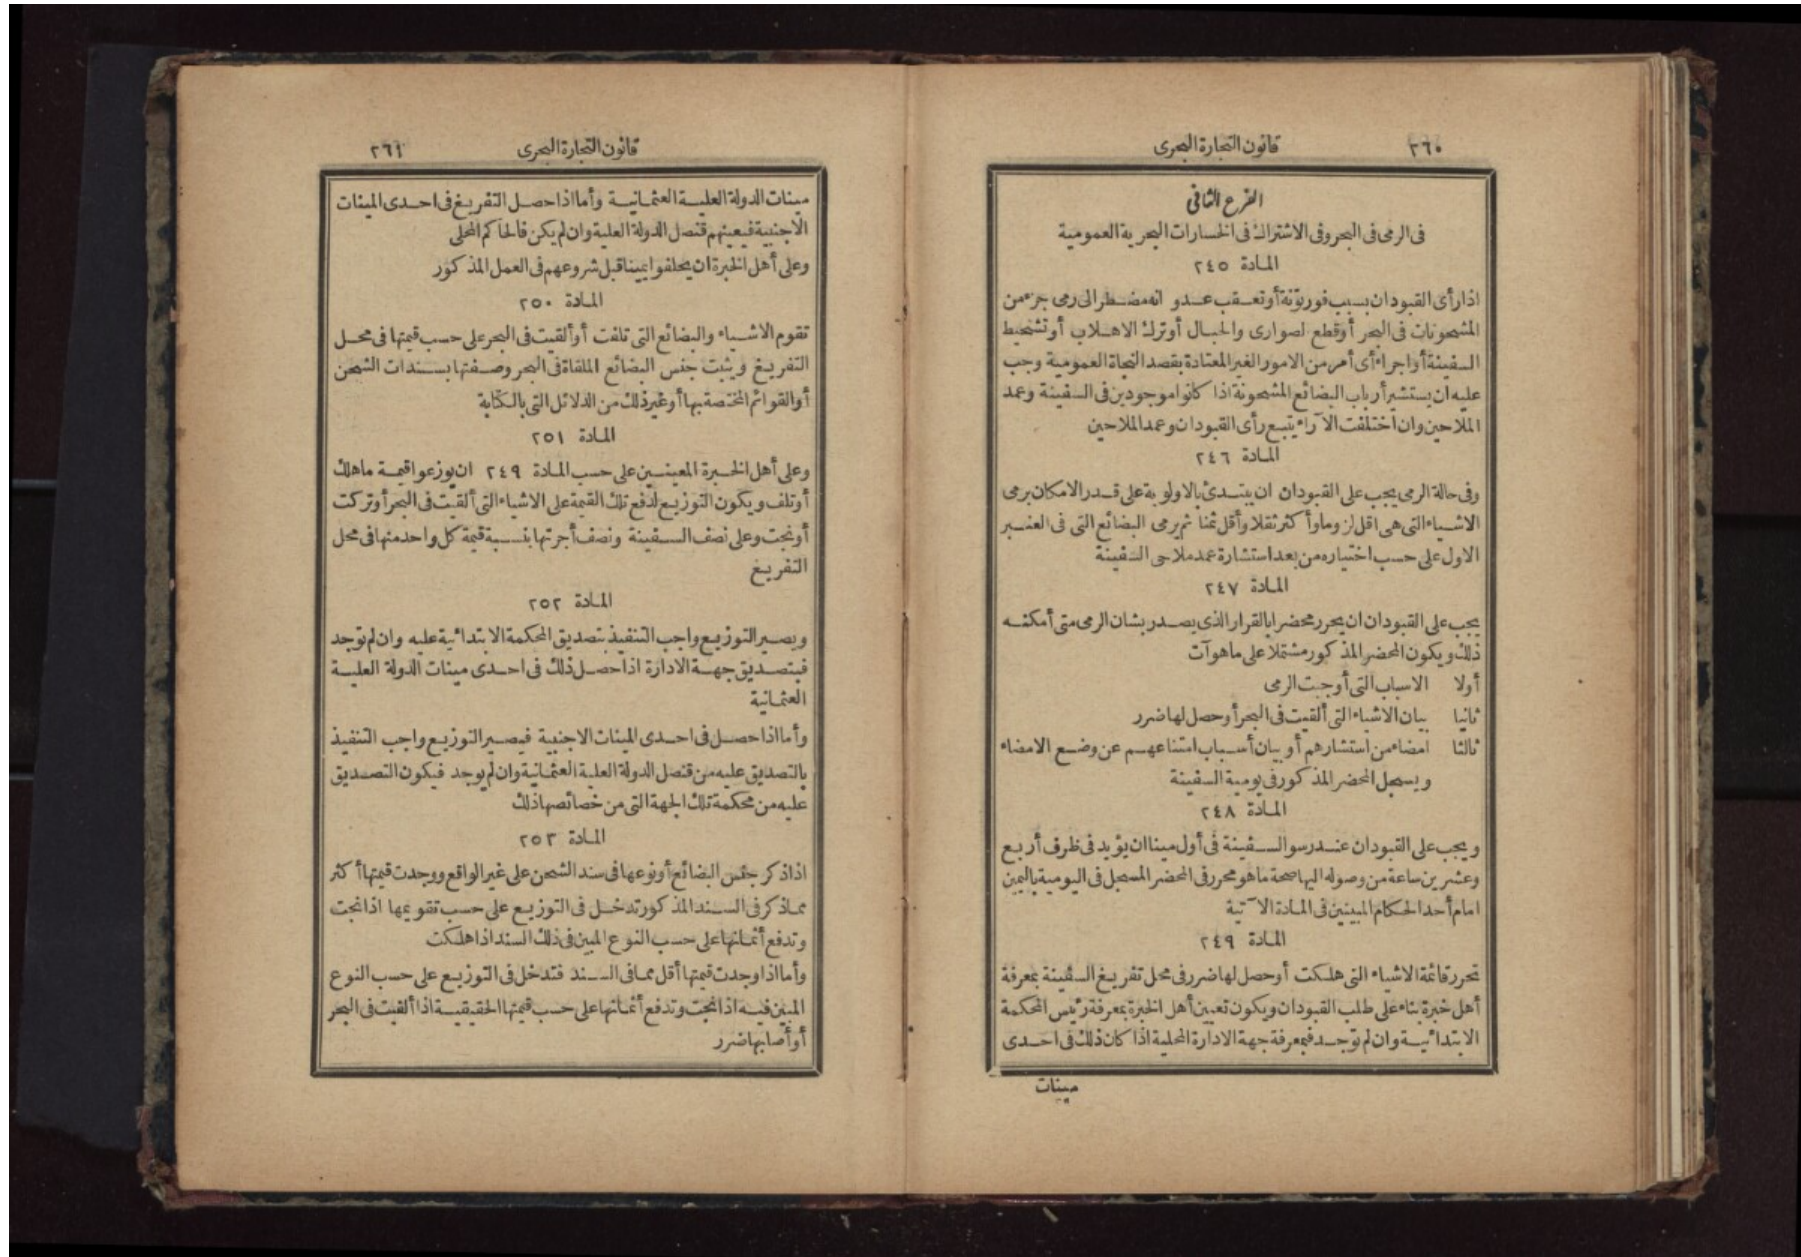 ٢٦٠
قانون التجارة البحرى
الفرع الثانى
فى الرمى فى البحر وفى الاشتراك فى الخسارات البحرية العمومية
المادة ٢٤٥
اذا رأى القبودان بسبب فورتونة أو تعقب عدو انه مضطر الى رمى جزء من
المشحونات فى البحر أو قطع لصوارى والحبال أو ترك الاهلاب أو تشحيط
السفينة أو اجراء أى أمر من الامور الغير المعتادة بقصد النجاة العمومية وجب
عليه ان يستشير أرباب البضائع المشحونة اذا كانوا موجودين فى السفينة وعمد
الملاحين وان اختلفت الآراء يتبع رأى القبودان وعمد الملاحين
المادة ٢٤٦
وفى حالة الرمى يجب على القبودان ان يبتدئ بالاولوية على قدر الامكان برمى
الاشياء التى هى اقل لزوما وأكثر ثقلا وأقل ثمنا ثم يرمى البضائع التى فى العنبر
الاول على حسب اختياره من بعد استشارة عمد ملاحى السفينة
المادة ٢٤٧
يجب على القبودان ان يحرر محضرا بالقرار الذى يصدر بشان الرمى متى أمكنه
ذلك ويكون المحضر المذكور مشتملا على ما هو آت
أولا الاسباب التى أوجبت الرمى
ثانيا بيان الاشياء التى ألقيت فى البحر أو حصل لها ضرر
ثالثا امضاء من استشارهم أو بيان أسباب امتناعهم عن وضع الامضاء
ويسجل المحضر المذكور فى يومية السفينة
المادة ٢٤٨
ويجب على القبودان عند رسو السفينة فى أول مينا ان يؤيد فى ظرف أربع
وعشرين ساعة من وصوله اليها صحة ما هو محرر فى المحضر المسجل فى اليومية باليمين
امام أحد الحكام المبينين فى المادة الآتية
المادة ٢٤٩
تحرر قائمة الاشياء التى هلكت أو حصل لها ضرر فى محل تفريغ السفينة بمعرفة
أهل خبرة بناء على طلب القبودان ويكون تعيين أهل الخبرة بمعرفة رئيس المحكمة
الابتدائية وان لم توجد فبمعرفة جهة الادارة المحلية اذا كان ذلك فى احدى
مينات
قانون التجارة البحرى
٢٦١
مينات الدولة العلية العثمانية وأما اذا حصل التفريغ فى احدى المينات
الاجنبية فيعينهم قنصل الدولة العلية وان لم يكن فالحاكم المحلى
وعلى أهل الخبرة ان يحلفوا يمينا قبل شروعهم فى العمل المذكور
المادة ٢٥٠
تقوم الاشياء والبضائع التى تلفت أو ألقيت فى البحر على حسب قيمتها فى محل
التفريغ ويثبت جنس البضائع الملقاة فى البحر وصفتها بسندات الشحن
أو القوائم المختصة بها أو غير ذلك من الدلائل التى بالكتابة
المادة ٢٥١
وعلى أهل الخبرة المعينين على حسب المادة ٢٤٩ ان يوزعوا قيمة ما هلك
أو تلف ويكون التوزيع لدفع تلك القيمة على الاشياء التى ألقيت فى البحر أو تركت
أو نجت وعلى نصف السفينة ونصف أجرتها بنسبة قيمة كل واحد منها فى محل
التفريغ
المادة ٢٥٢
ويصير التوزيع واجب التنفيذ بتصديق المحكمة الابتدائية عليه وان لم توجد
فبتصديق جهة الادارة اذا حصل ذلك فى احدى مينات الدولة العلية
العثمانية
وأما اذا حصل فى احدى المينات الاجنبية فيصير التوزيع واجب التنفيذ
بالتصديق عليه من قنصل الدولة العلية العثمانية وان لم يوجد فيكون التصديق
عليه من محكمة تلك الجهة التى من خصائصها ذلك
المادة ٢٥٣
اذا ذكر جنس البضائع أو نوعها فى سند الشحن على غير الواقع ووجدت قيمتها أكثر
مما ذكر فى السند المذكور تدخل فى التوزيع على حسب تقويمها اذا نجت
وتدفع أثمانها على حسب النوع المبين فى ذلك السند اذا هلكت
وأما اذا وجدت قيمتها أقل مما فى السند فتدخل فى التوزيع على حسب النوع
المبين فيه اذا نجت وتدفع أثمانها على حسب قيمتها الحقيقية اذا ألقيت فى البحر
أو أصابها ضرر